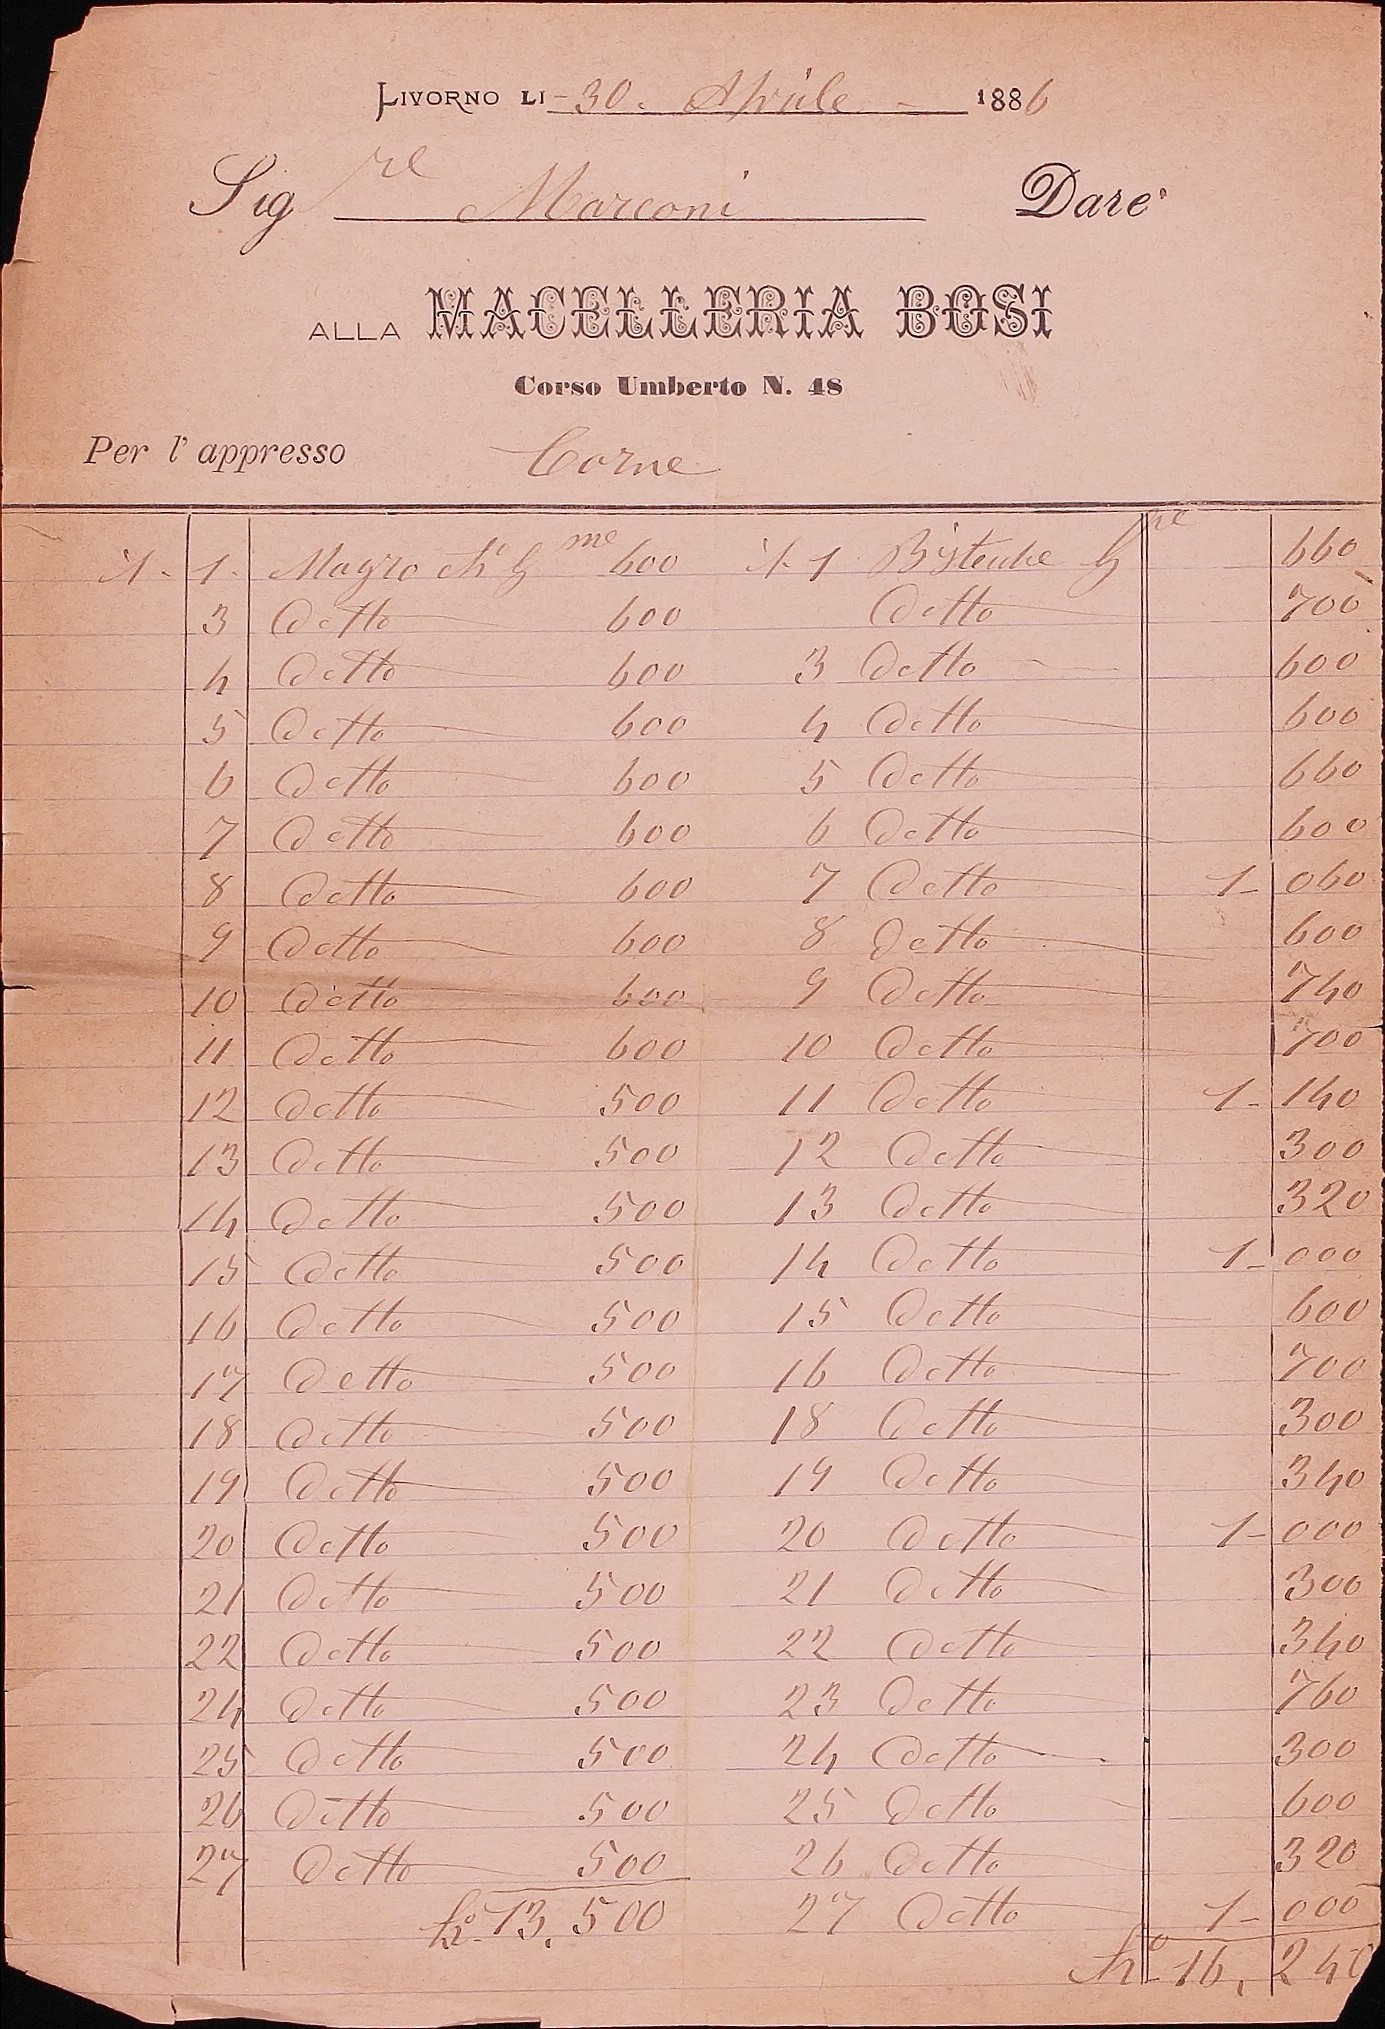 Livorno li 30. Aprile 1886
Sig re Marconi Dare
alla MACELLERIA BOSI
Corso Umberto N. 48
Per l'appresso Carne
1 Magro 600 1 Bistecche 660
3 Detto 600 Detto 700
4 Detto 600 3 Detto 600
5 Detto 600 4 Detto 600
6 Detto 600 5 Detto 660
7 Detto 600 6 Detto 600
8 Detto 600 7 Detto 1-060
9 Detto 600 8 Detto 600
10 Detto 600 9 Detto 740
11 Detto 600 10 Detto 700
12 Detto 500 11 Detto 1-140
13 Detto 500 12 Detto 300
14 Detto 500 13 Detto 320
15 Detto 500 14 Detto 1-000
16 Detto 500 15 Detto 600
17 Detto 500 16 Detto 700
18 Detto 500 18 Detto 300
19 Detto 500 19 Detto 340
20 Detto 500 20 Detto 1-000
21 Detto 500 21 Detto 300
22 Detto 500 22 Detto 340
24 Detto 500 23 Detto 760
25 Detto 500 24 Detto 300
26 Detto 500 25 Detto 600
27 Detto 500 26 Detto 320
13,500 27 Detto 1-000
16,240